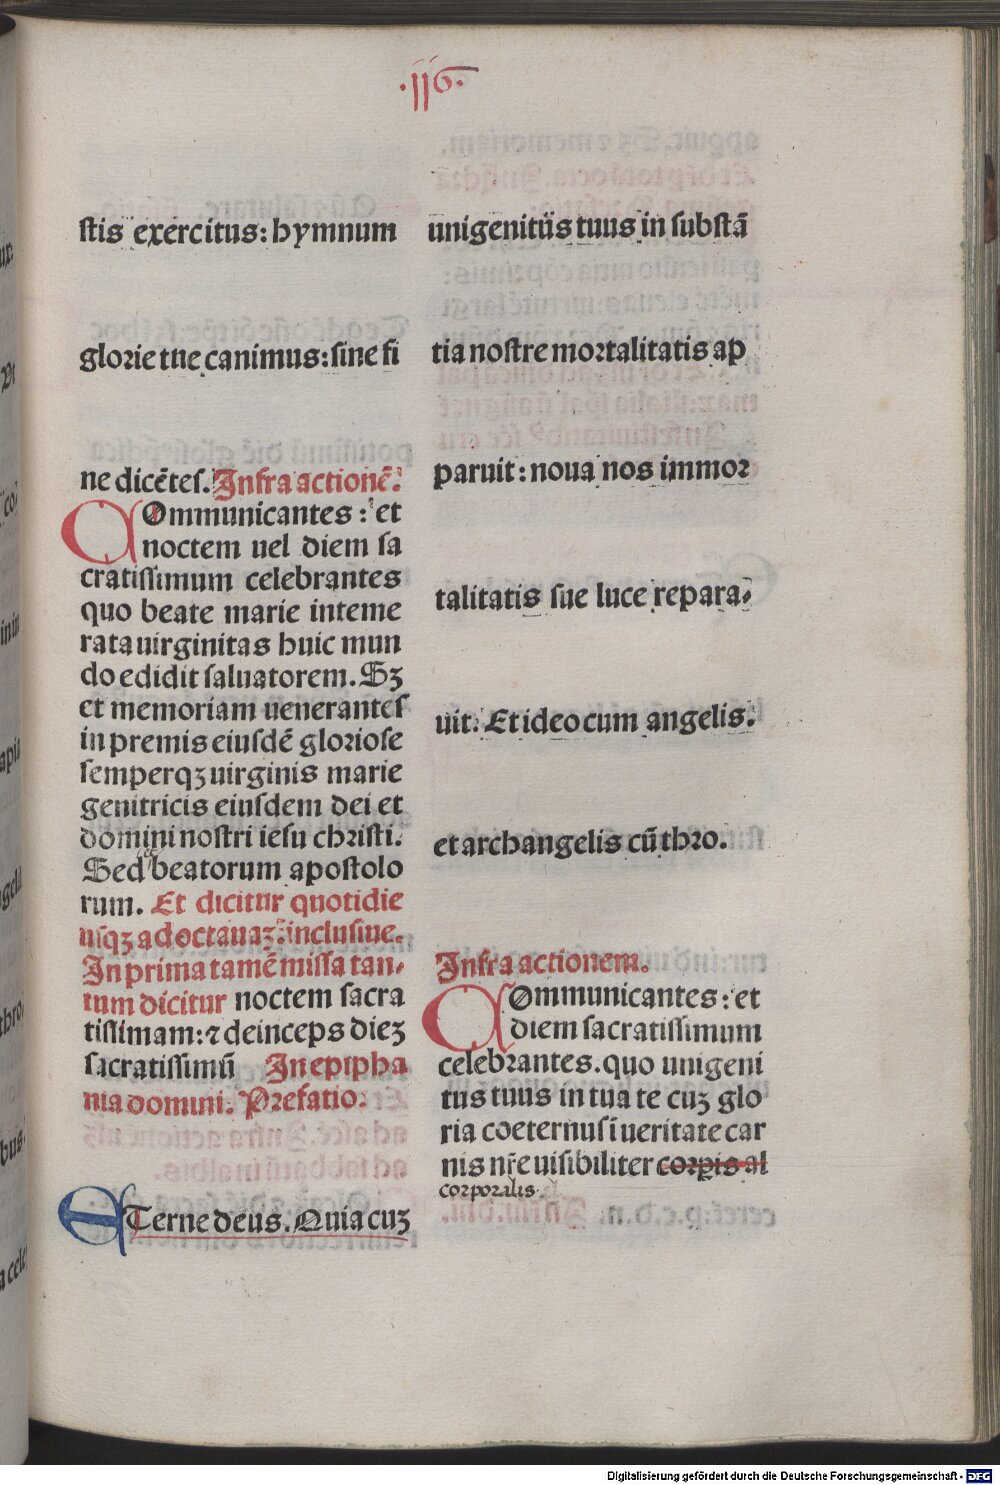 ·116·
ſtis exercitus: hymnum
glorie tue canimus: ſine fi
ne dicētes. Infra actionē.
COmmunicantes: et
noctem uel diem ſa
cratiſſimum celebrantes
quo beate marie inteme
rata uirginitas huic mun
do edidit ſaluatorem. Sꝫ
et memoriam uenerantes
in premis eiuſdē glorioſe
ſemperqꝫ uirginis marie
genitricis eiuſdem dei et
domini noſtri ieſu chriſti.
Sed beatorum apoſtolo
rum. Et dicitur quotidie
uſqꝫ ad octauaꝫ: incluſiue.
In prima tamē miſſa tan-
tum dicitur noctem ſacra
tiſſimam: ⁊ deinceps dieꝫ
ſacratiſſimū In epipha
nia domini. Prefatio.
ETerne deus. Quia cuꝫ
unigenitus tuus in ſubſtā
tia noſtre mortalitatis ap
paruit: noua nos immor
talitatis ſue luce repara-
uit. Et ideo cum angelis.
et archangelis cū thro.
Infra actionem.
COmmunicantes: et
diem ſacratiſſimum
celebrantes. quo unigeni
tus tuus in tua te cuꝫ glo
ria coeternuſ i ueritate car
nis nr̄e uiſibiliter corpis al
corporalis
Digitalisierung gefördert durch die Deutsche Forschungsgemeinschaft - DFG